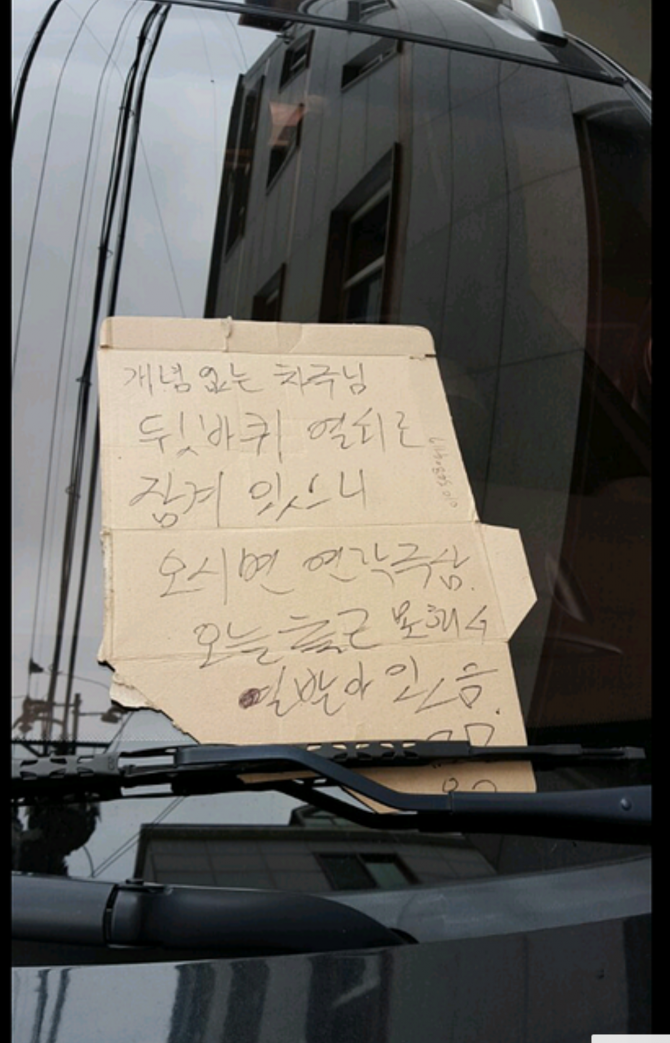 개념 없는 차주님
뒷바퀴 열쇠로
잠겨 있으니
오시면 연락주삼.
오늘 출근 못해서
열받아 있음.